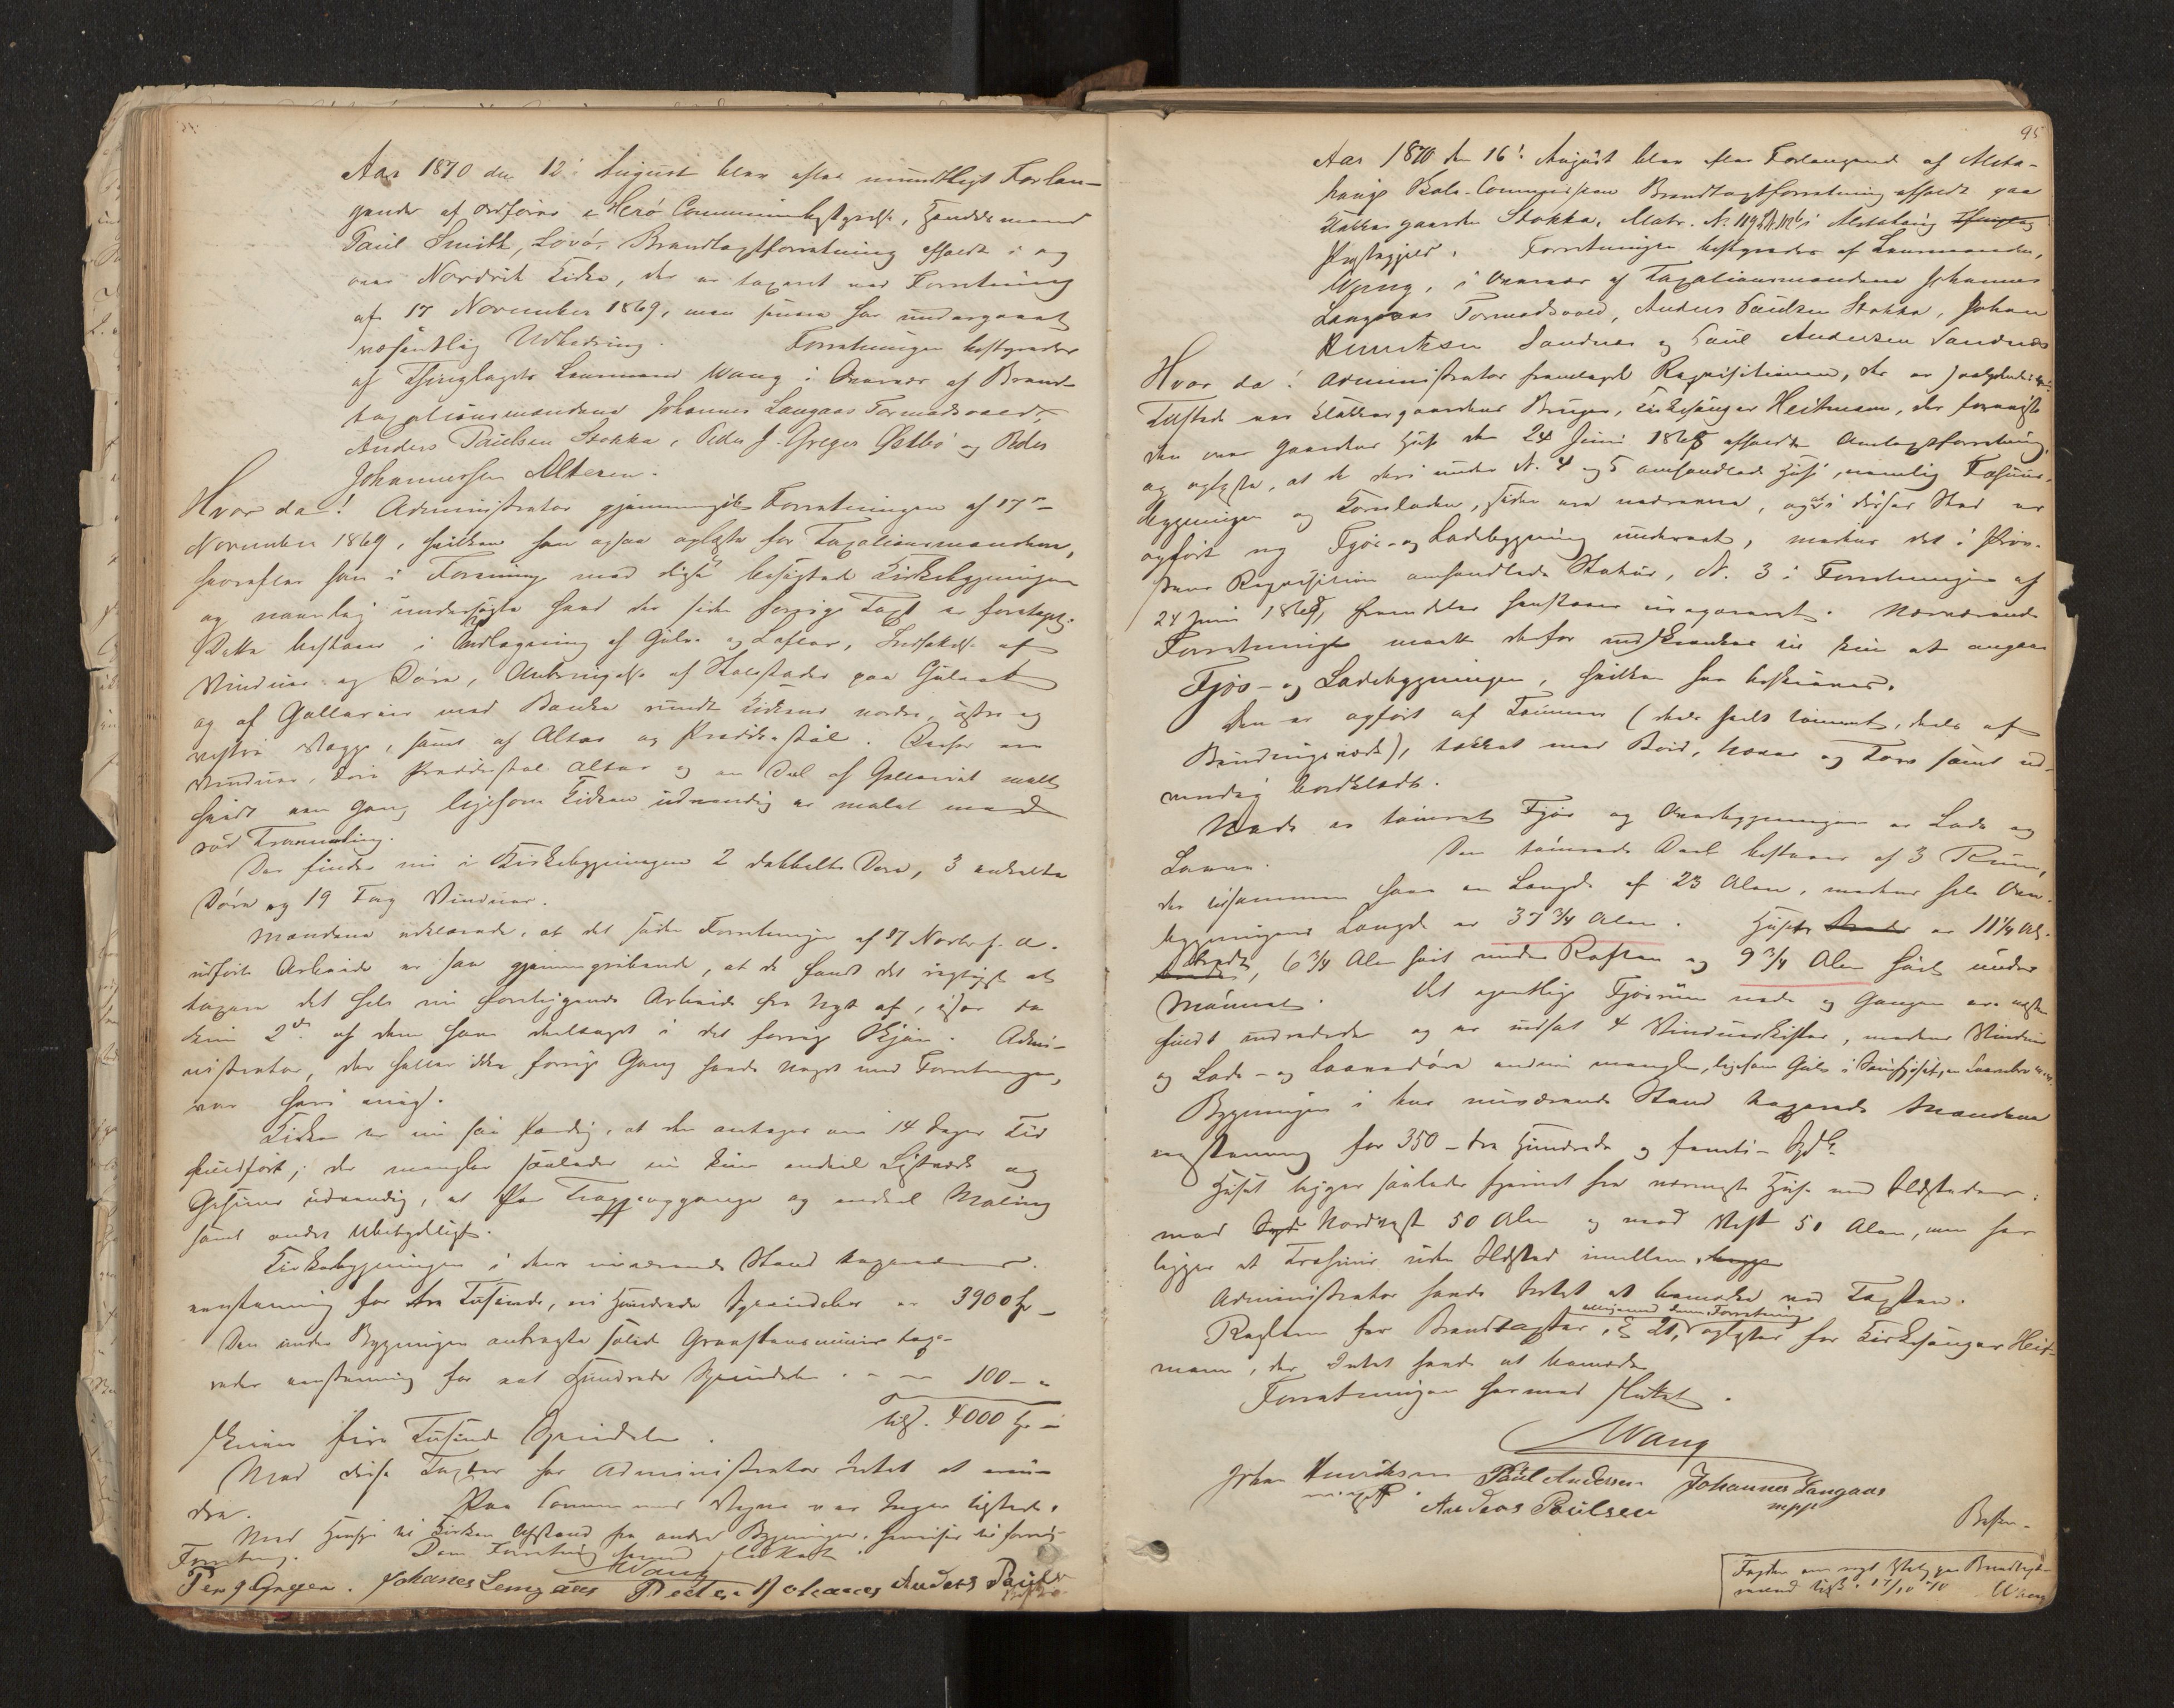 Aar 1870 den 12' August blev efter mundtligt Forlan-
gende af Ordføreren i Herö Communebestyrelse, Handelsmand
Paul Smith, Lovö, Brandtaxtforretning afholdt i og
over Nordvik Kirke, der er taxeret ved Forretning
af 17 November 1869, men siden har undergaaet
væsentlig Udbedring. Forretningen bestyredes
af Thinglagets Lensmand Wang i Overvær af Brand-
taxationsmændene Johannes Langaas Formodsvold,
Anders Paulsen Stokka, Peder J. Greger Østbö og Peder
Johannessen Alteren.
Hvor da! Administrator gjennemgik Forretningen af 17de
November 1869, hvilken han ogsaa oplæste for Taxationsmændene,
hvorefter han i Forening med disse besigtede Kirkebygningen
og nøiagtig undersøgte hvad der siden forrige Taxt er foretaget.
Dette bestaaer i Indlægning af Gulv og Lofter, Indsættelse af
Vinduer og Døre, Anbringelse af Stolestader paa Gulvet
og af Gallerier med Bænke rundt Kirkens nordre, østre og
vestre Vægge, samt af Alter og Prædikestol. Derhos ere
Vinduer, Døre Prædikestol Alter og en Deel af Galleriet malt
hvidt een Gang ligesom Kirken udvendig er malet med
rød Tranmaling.
Der findes nu i Kirkebygningen 2 dobbelte Døre, 3 enkelte
Døre og 19 Fag Vinduer.
Mændene erklærede, at det siden Forretningen af 17 Novbr f. A.
udførte Arbeide er saa gjennemgribende, at de fandt det rigtigst at
taxere det hele nu foreliggende Arbeide fra Nyt af, især da
kun 2de af dem have deeltaget i det forrige Skjøn. Admi-
nistrator, der heller ikke forrige Gang havde Noget med Forretningen,
var heri enig.
Kirken er nu saa færdig, at den antages om 14 Dages Tid
fuldført; der mangler saaledes nu kun endeel Listværk og
Gesimser udvendig, et Par Trappeopgange og endeel Maling
samt andet Ubetydeligt.
Kirkebygningen i dens nuværende Stand taxeredes
eenstemmig for tre Tusinde, ni Hundrede Speciedaler er 3900 Sp –
Den under Bygningen anbragte solide Graastensmuur taxe-
redes eenstemmig for eet Hundrede Speciedaler . – – 100 – "
tils. 4000 Sp –
skriver fire Tusinde Speciedaler.
Mod disse Taxter har Administrator Intet at erin-
dre. Paa Communens Vegne var Ingen tilstede.
Med Hensyn til Kirkens Afstand fra andre Bygninger, henvises til forrige
Forretning. Dem Forretning hermed sluttet.
Wang
Peder J Greger. Johanes Langaas Peder Johanes Anders Paulsen
95
Aar 1870 den 16' August blev efter Forlangende af Alsta-
haug Skole-Commission Brandtaxtforretning afholdt paa
Klokkergaarden Stokka, Matr. N. 119 i Alstahaug
Præstegjeld. Forretningen bestyredes af Lensmanden,
Wang, i Overvær af Taxationsmændene Johannes
Langaas Formodsvold, Anders Paulsen Stokka, Johan
Henriksen Sandnes og Paul Andersen Sandnes
Hvor da! Administrator fremlagde Requisitionen, der er saalydende:
Tilstede var Klokkergaardens Bruger, Kirkesanger Heitmann, der foreviste
den over Gaardens Huse den 24 Juni 1868 afholdte Omtaxtforretning,
og oplyste, at de deri under N. 4 og 5 omhandlede Huse, nemlig Fæhuus-
bygningen og Kornladen, siden ere nedrevne, og at i disses Sted er
opført ny Fjøs- og Ladebygning undereet, medens det i Prov-
stens Requisition omhandlede Stabur, N. 3 i Forretningen af
24 Juni 1868, fremdeles henstaaer uregareret. Nærværende
Forretning maatte derfor indskrænkes til kun at angaae
Fjøs- og Ladebygningen, hvilken har beskrives.
Den er opført af Tømmer (deels heelt tømret, deels af
Bindingsværk), tækket med Bord, Næver og Torv samt ud-
vendig bordklædt.
Nede er tømret Fjøs og Overbygningen er Lade og
Laave. Den tømrede Deel bestaaer af 3 Rum,
der tilsammen have en Længde af 23 Alen, medens hele Over-
bygningens Længde er 37 3/4 Alen. Huset er 11 1/4 Al.
bredt, 6 3/4 Alen høit under Raften og 9 3/4 Alen høit under
Mønnet. Det egentlige Fjøsrum nede og Gangen ere næsten
fuldt indredede og er indsat 4 Vindueskister, medens Vinduer
og Lade- og Laavedøre endnu mangle, ligesom Gulv i Sauefjøset, en Laavebro m.m.
Bygningen i dens nuværende Stand taxerede Mændene
eenstemmig for 350 – tre Hundrede og femti – Spdlr.
Huset ligger saaledes fjernet fra nærmeste Huse med Ildsteder:
mod Nordvest 50 Alen og mod Vest 51 Alen, men her
ligger et Træhuus uden Ildsted imellem.
Administrator havde Intet at bemærke ved Taxten.
Reglerne for Brandtaxter, § 21, alligemed denne Forretning oplæstes for Kirkesanger Heit-
mann, der Intet havde at bemærke
Forretningen hermed sluttet.
Wang
Johan Henriksen Paul Andersen Johannes Langaas
m. p. P. Anders Paulsen mpp
Besk-
Taxten
mænd 17/10 70 Wang